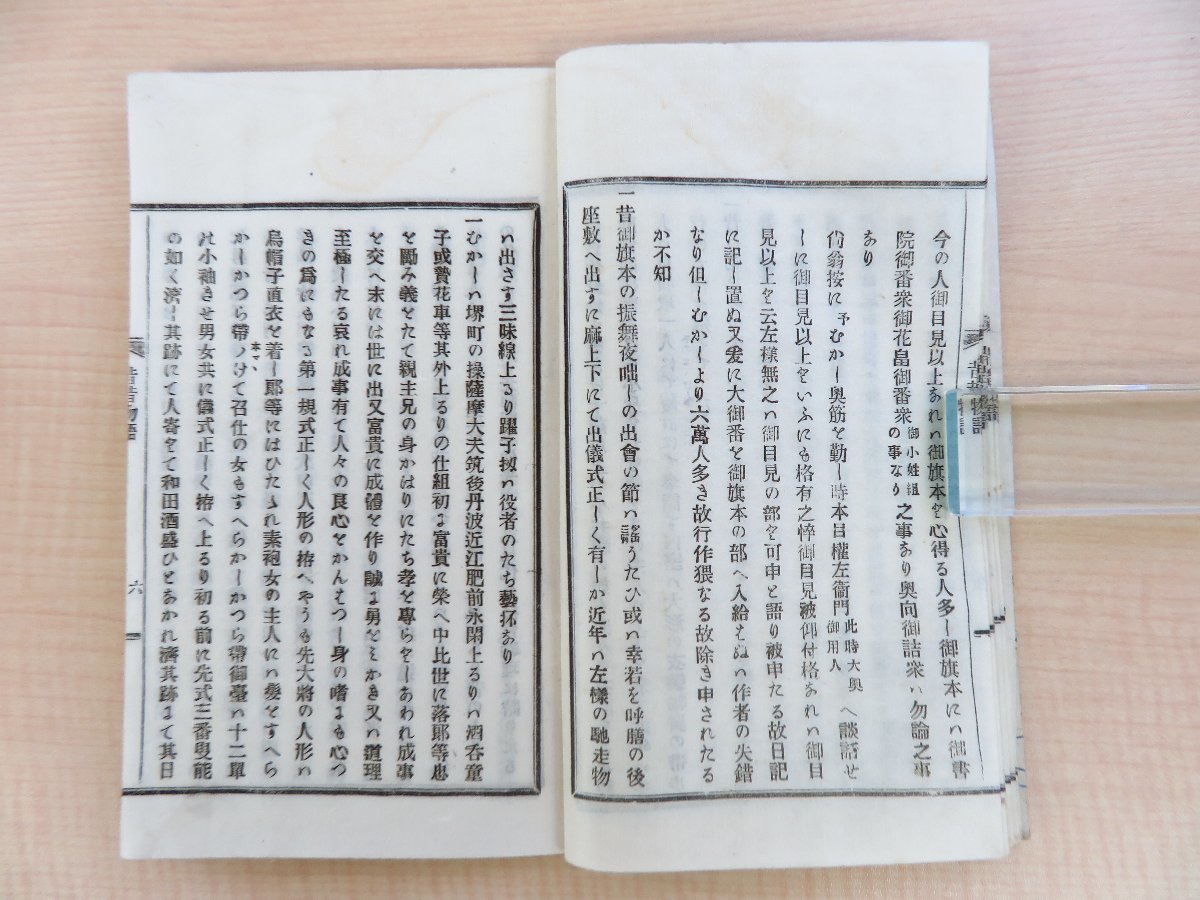 今の人御目見以上あれハ御旗本を心得る人多し御旗本にハ御書
院御番衆御花畠御番衆御小姓組の事なり之事あり奥向御詰衆ハ勿論之事
あり
尚翁按に予むかし奥筋を勤し時本目權左衞門此時大奥御用人へ談話せ
しに御目見以上をいふにも格有之悴御目見被仰付格あれハ御目
見以上を云左樣無之ハ御目見の部を可申と語り被申たる故日記
に記し置ぬ又爰に大御番を御旗本の部へ入給はぬハ作者の失錯
なり但しむかしより六萬人多き故行作猥なる故除き申されたる
か不知
一昔御旗本の振舞夜咄しの出會の節ハうたひ或ハ幸若を呼膳の後
座敷へ出すに麻上下にて出儀式正しく有しか近年ハ左樣の馳走物
ハ出さす三味線上るり躍子扨ハ役者のたち藝抔あり
一むかしハ堺町の操薩摩大夫筑後丹波近江肥前永閑上るりハ酒呑童
子或賛花車等其外上るりの仕組初は富貴に榮へ中比世に落郎等忠
を勵み義をたて親主兄の身かはりにたち孝を專らをしあわれ成事
を交へ末には世に出又富貴に成體を作り誠は勇をミかき又ハ道理
至極したる哀れ成事有て人々の良心をかんはつし身の嗜にも心つ
きの爲にもなる第一規式正しく人形の拵へやうも先大將の人形ハ
烏帽子直衣を着し郎等にはひたゝれ素袍女の主人にハ髮をすへら
本マヽ
かしかつら帶つけて召仕の女もすへらかしかつら帶御臺ハ十二單
れ小袖きせ男女共に儀式正しく拵へ上るり初る前に先式三番叟能
の如く濟し其跡にて人寄をて和田酒盛ひとあかれ濟其跡にて其日
昔昔物語
六